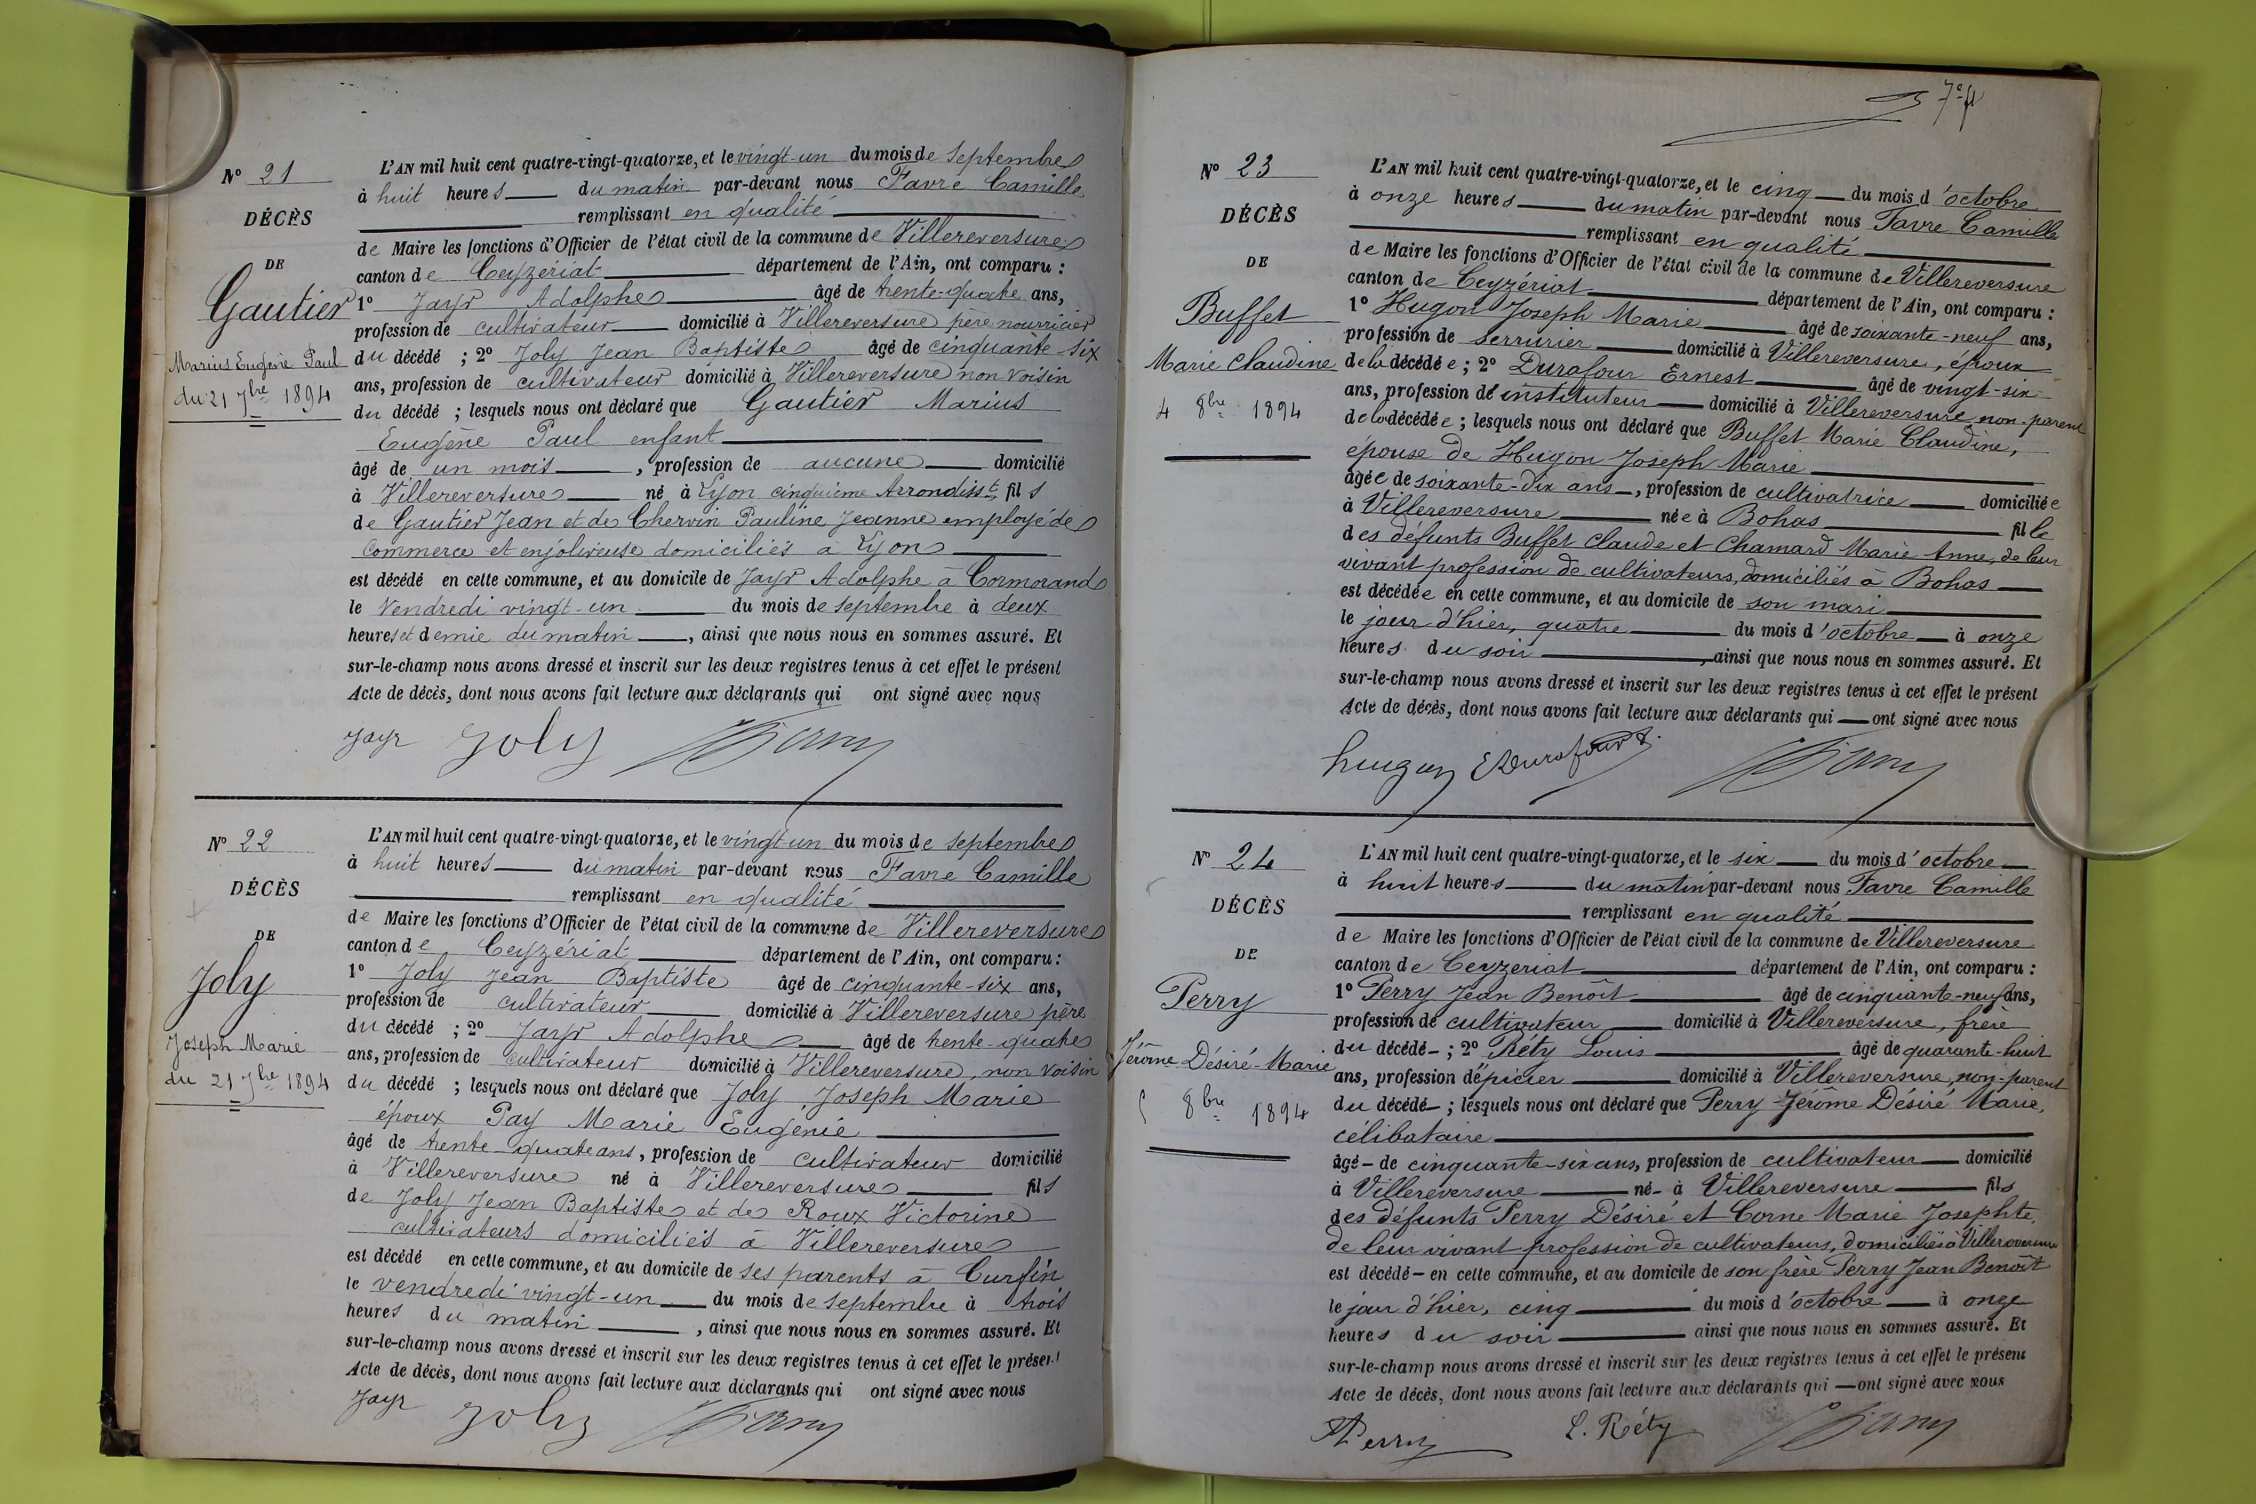 N° 21
DÉCÈS
DE
Gautier
Marius Eugène Paul
du 21 7bre 1894
L'AN mil huit cent quatre-vingt-quatorze, et le vingt-un du mois de septembre
à huit heures du matin par-devant nous Favre Camille
remplissant en qualité
de Maire les fonctions d'Officier de l'état civil de la commune de Villereversure
canton de Ceyzériat département de l'Ain, ont comparu :
1° Jayr Adolphe âgé de trente-quatre ans,
profession de cultivateur domicilié à Villereversure père nourricier
du décédé ; 2° Joly Jean Baptiste âgé de cinquante-six
ans, profession de cultivateur domicilié à Villereversure non voisin
du décédé ; lesquels nous ont déclaré que Gautier Marius
Eugène Paul enfant
âgé de un mois , profession de aucune domicilié
à Villereversure né à Lyon cinquième Arrondisst fils
de Gautier Jean et de Chervin Pauline Jeanne employé de
Commerce et enjoliveuse domiciliés à Lyon
est décédé en cette commune, et au domicile de Jayr Adolphe à Cormorand
le Vendredi vingt-un du mois de septembre à deux
heures et demie du matin , ainsi que nous nous en sommes assuré. Et
sur-le-champ nous avons dressé et inscrit sur les deux registres tenus à cet effet le présent
Acte de décès, dont nous avons fait lecture aux déclarants qui ont signé avec nous
Jayr Joly
N° 22
DÉCÈS
DE
Joly
Joseph Marie
du 21 7bre 1894
L'AN mil huit cent quatre-vingt-quatorze, et le vingt-un du mois de septembre
à huit heures du matin par-devant nous Favre Camille
remplissant en qualité
de Maire les fonctions d'Officier de l'état civil de la commune de Villereversure
canton de Ceyzériat département de l'Ain, ont comparu :
1° Joly Jean Baptiste âgé de cinquante-six ans,
profession de cultivateur domicilié à Villereversure père
du décédé ; 2° Jayr Adolphe âgé de trente-quatre
ans, profession de cultivateur domicilié à Villereversure, non voisin
du décédé ; lesquels nous ont déclaré que Joly Joseph Marie
époux Pay Marie Eugénie
âgé de trente-quatre ans, profession de cultivateur domicilié
à Villereversure né à Villereversure fils
de Joly Jean Baptiste et de Roux Victorine
cultivateurs domiciliés à Villereversure
est décédé en cette commune, et au domicile de ses parents à Curfin
le vendredi vingt-un du mois de septembre à trois
heures du matin , ainsi que nous nous en sommes assuré. Et
sur-le-champ nous avons dressé et inscrit sur les deux registres tenus à cet effet le présent
Acte de décès, dont nous avons fait lecture aux déclarants qui ont signé avec nous
Jayr Joly
N° 23
DÉCÈS
DE
Buffet
Marie Claudine
4 8bre 1894
L'AN mil huit cent quatre-vingt-quatorze, et le cinq du mois d'octobre
à onze heures du matin par-devant nous Favre Camille
remplissant en qualité
de Maire les fonctions d'Officier de l'état civil de la commune de Villereversure
canton de Ceyzériat département de l'Ain, ont comparu :
1° Hugon Joseph Marie âgé de soixante-neuf ans,
profession de serrurier domicilié à Villereversure, époux
de la décédée ; 2° Durafour Ernest âgé de vingt-six
ans, profession d'instituteur domicilié à Villereversure, non-parent
de la décédée ; lesquels nous ont déclaré que Buffet Marie Claudine,
épouse de Hugon Joseph Marie
âgée de soixante-dix ans , profession de cultivatrice domiciliée
à Villereversure née à Bohas fille
des défunts Buffet Claude et Chamard Marie Anne, de leur
vivant profession de cultivateurs, domiciliés à Bohas
est décédée en cette commune, et au domicile de son mari
le jour d'hier, quatre du mois d'octobre à onze
heures du soir , ainsi que nous nous en sommes assuré. Et
sur-le-champ nous avons dressé et inscrit sur les deux registres tenus à cet effet le présent
Acte de décès, dont nous avons fait lecture aux déclarants qui ont signé avec nous
hugon EDurafour
N° 24
DÉCÈS
DE
Perry
Jérôme Désiré-Marie
5 8bre 1894
L'AN mil huit cent quatre-vingt-quatorze, et le six du mois d'octobre
à huit heures du matin par-devant nous Favre Camille
remplissant en qualité
de Maire les fonctions d'Officier de l'état civil de la commune de Villereversure
canton de Ceyzeriat département de l'Ain, ont comparu :
1° Perry Jean Benoît âgé de cinquante-neuf ans,
profession de cultivateur domicilié à Villereversure, frère
du décédé ; 2° Réty Louis âgé de quarante-huit
ans, profession d'épicier domicilié à Villereversure, non-parent
du décédé ; lesquels nous ont déclaré que Perry Jérôme Désiré Marie,
célibataire
âgé de cinquante-six ans, profession de cultivateur domicilié
à Villereversure né à Villereversure fils
des défunts Perry Désiré et Corne Marie Josephte,
de leur vivant profession de cultivateurs, domiciliés à Villereversure
est décédé en cette commune, et au domicile de son frère Perry Jean Benoît
le jour d'hier, cinq du mois d'octobre à onze
heures du soir ainsi que nous nous en sommes assuré. Et
sur-le-champ nous avons dressé et inscrit sur les deux registres tenus à cet effet le présent
Acte de décès, dont nous avons fait lecture aux déclarants qui ont signé avec nous
Perry L. Réty